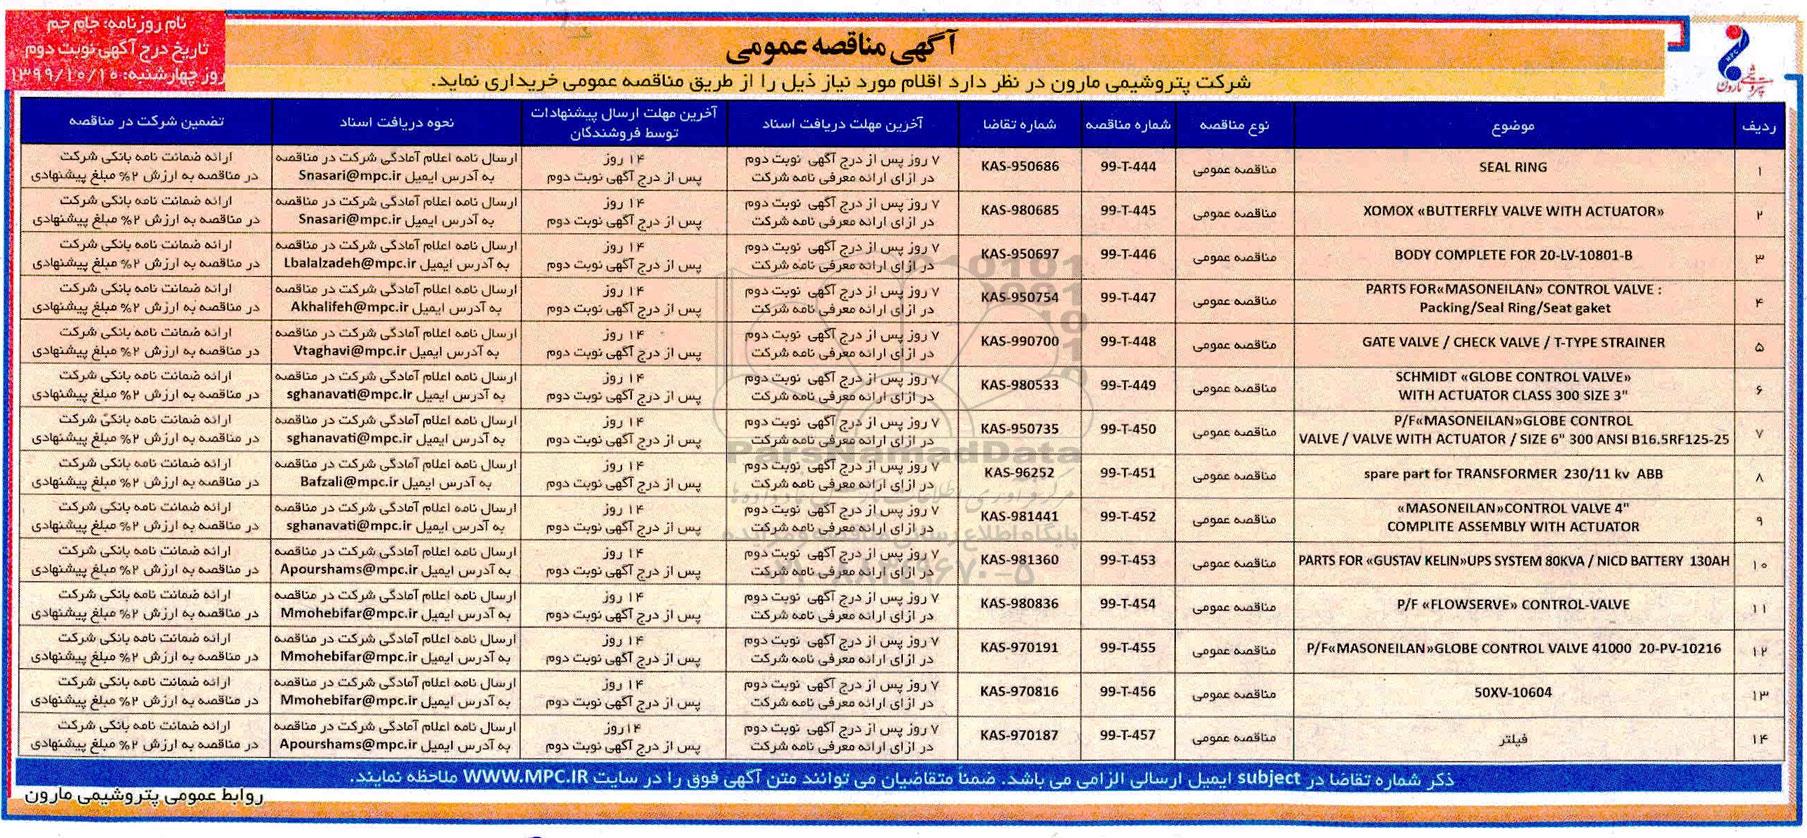 نام روزنامه: جام جم
تاریخ درج آگهی نوبت دوم
روز چهارشنبه: ۱۳۹۹/۱۰/۱۰
آگهی مناقصه عمومی
شرکت پتروشیمی مارون در نظر دارد اقلام مورد نیاز ذیل را از طریق مناقصه عمومی خریداری نماید.
پتروشیمی مارون
ردیف موضوع نوع مناقصه شماره مناقصه شماره تقاضا آخرین مهلت دریافت اسناد آخرین مهلت ارسال پیشنهادات توسط فروشندگان نحوه دریافت اسناد تضمین شرکت در مناقصه
۱ SEAL RING مناقصه عمومی 99-T-444 KAS-950686 ۷ روز پس از درج آگهی نوبت دوم در ازای ارائه معرفی نامه شرکت ۱۴ روز پس از درج آگهی نوبت دوم ارسال نامه اعلام آمادگی شرکت در مناقصه به آدرس ایمیل Snasari@mpc.ir ارائه ضمانت نامه بانکی شرکت در مناقصه به ارزش ۲% مبلغ پیشنهادی
۲ XOMOX «BUTTERFLY VALVE WITH ACTUATOR» مناقصه عمومی 99-T-445 KAS-980685 ۷ روز پس از درج آگهی نوبت دوم در ازای ارائه معرفی نامه شرکت ۱۴ روز پس از درج آگهی نوبت دوم ارسال نامه اعلام آمادگی شرکت در مناقصه به آدرس ایمیل Snasari@mpc.ir ارائه ضمانت نامه بانکی شرکت در مناقصه به ارزش ۲% مبلغ پیشنهادی
۳ BODY COMPLETE FOR 20-LV-10801-B مناقصه عمومی 99-T-446 KAS-950697 ۷ روز پس از درج آگهی نوبت دوم در ازای ارائه معرفی نامه شرکت ۱۴ روز پس از درج آگهی نوبت دوم ارسال نامه اعلام آمادگی شرکت در مناقصه به آدرس ایمیل Lbalalzadeh@mpc.ir ارائه ضمانت نامه بانکی شرکت در مناقصه به ارزش ۲% مبلغ پیشنهادی
۴ PARTS FOR«MASONEILAN» CONTROL VALVE : Packing/Seal Ring/Seat gaket مناقصه عمومی 99-T-447 KAS-950754 ۷ روز پس از درج آگهی نوبت دوم در ازای ارائه معرفی نامه شرکت ۱۴ روز پس از درج آگهی نوبت دوم ارسال نامه اعلام آمادگی شرکت در مناقصه به آدرس ایمیل Akhalifeh@mpc.ir ارائه ضمانت نامه بانکی شرکت در مناقصه به ارزش ۲% مبلغ پیشنهادی
۵ GATE VALVE / CHECK VALVE / T-TYPE STRAINER مناقصه عمومی 99-T-448 KAS-990700 ۷ روز پس از درج آگهی نوبت دوم در ازای ارائه معرفی نامه شرکت ۱۴ روز پس از درج آگهی نوبت دوم ارسال نامه اعلام آمادگی شرکت در مناقصه به آدرس ایمیل Vtaghavi@mpc.ir ارائه ضمانت نامه بانکی شرکت در مناقصه به ارزش ۲% مبلغ پیشنهادی
۶ SCHMIDT «GLOBE CONTROL VALVE» WITH ACTUATOR CLASS 300 SIZE 3" مناقصه عمومی 99-T-449 KAS-980533 ۷ روز پس از درج آگهی نوبت دوم در ازای ارائه معرفی نامه شرکت ۱۴ روز پس از درج آگهی نوبت دوم ارسال نامه اعلام آمادگی شرکت در مناقصه به آدرس ایمیل sghanavati@mpc.ir ارائه ضمانت نامه بانکی شرکت در مناقصه به ارزش ۲% مبلغ پیشنهادی
۷ P/F«MASONEILAN»GLOBE CONTROL VALVE / VALVE WITH ACTUATOR / SIZE 6" 300 ANSI B16.5RF125-25 مناقصه عمومی 99-T-450 KAS-950735 ۷ روز پس از درج آگهی نوبت دوم در ازای ارائه معرفی نامه شرکت ۱۴ روز پس از درج آگهی نوبت دوم ارسال نامه اعلام آمادگی شرکت در مناقصه به آدرس ایمیل sghanavati@mpc.ir ارائه ضمانت نامه بانکی شرکت در مناقصه به ارزش ۲% مبلغ پیشنهادی
۸ spare part for TRANSFORMER 230/11 kv ABB مناقصه عمومی 99-T-451 KAS-96252 ۷ روز پس از درج آگهی نوبت دوم در ازای ارائه معرفی نامه شرکت ۱۴ روز پس از درج آگهی نوبت دوم ارسال نامه اعلام آمادگی شرکت در مناقصه به آدرس ایمیل Bafzali@mpc.ir ارائه ضمانت نامه بانکی شرکت در مناقصه به ارزش ۲% مبلغ پیشنهادی
۹ «MASONEILAN»CONTROL VALVE 4" COMPLITE ASSEMBLY WITH ACTUATOR مناقصه عمومی 99-T-452 KAS-981441 ۷ روز پس از درج آگهی نوبت دوم در ازای ارائه معرفی نامه شرکت ۱۴ روز پس از درج آگهی نوبت دوم ارسال نامه اعلام آمادگی شرکت در مناقصه به آدرس ایمیل sghanavati@mpc.ir ارائه ضمانت نامه بانکی شرکت در مناقصه به ارزش ۲% مبلغ پیشنهادی
۱۰ PARTS FOR «GUSTAV KELIN»UPS SYSTEM 80KVA / NICD BATTERY 130AH مناقصه عمومی 99-T-453 KAS-981360 ۷ روز پس از درج آگهی نوبت دوم در ازای ارائه معرفی نامه شرکت ۱۴ روز پس از درج آگهی نوبت دوم ارسال نامه اعلام آمادگی شرکت در مناقصه به آدرس ایمیل Apourshams@mpc.ir ارائه ضمانت نامه بانکی شرکت در مناقصه به ارزش ۲% مبلغ پیشنهادی
۱۱ P/F «FLOWSERVE» CONTROL-VALVE مناقصه عمومی 99-T-454 KAS-980836 ۷ روز پس از درج آگهی نوبت دوم در ازای ارائه معرفی نامه شرکت ۱۴ روز پس از درج آگهی نوبت دوم ارسال نامه اعلام آمادگی شرکت در مناقصه به آدرس ایمیل Mmohebifar@mpc.ir ارائه ضمانت نامه بانکی شرکت در مناقصه به ارزش ۲% مبلغ پیشنهادی
۱۲ P/F«MASONEILAN»GLOBE CONTROL VALVE 41000 20-PV-10216 مناقصه عمومی 99-T-455 KAS-970191 ۷ روز پس از درج آگهی نوبت دوم در ازای ارائه معرفی نامه شرکت ۱۴ روز پس از درج آگهی نوبت دوم ارسال نامه اعلام آمادگی شرکت در مناقصه به آدرس ایمیل Mmohebifar@mpc.ir ارائه ضمانت نامه بانکی شرکت در مناقصه به ارزش ۲% مبلغ پیشنهادی
۱۳ 50XV-10604 مناقصه عمومی 99-T-456 KAS-970816 ۷ روز پس از درج آگهی نوبت دوم در ازای ارائه معرفی نامه شرکت ۱۴ روز پس از درج آگهی نوبت دوم ارسال نامه اعلام آمادگی شرکت در مناقصه به آدرس ایمیل Mmohebifar@mpc.ir ارائه ضمانت نامه بانکی شرکت در مناقصه به ارزش ۲% مبلغ پیشنهادی
۱۴ فیلتر مناقصه عمومی 99-T-457 KAS-970187 ۷ روز پس از درج آگهی نوبت دوم در ازای ارائه معرفی نامه شرکت ۱۴روز پس از درج آگهی نوبت دوم ارسال نامه اعلام آمادگی شرکت در مناقصه به آدرس ایمیل Apourshams@mpc.ir ارائه ضمانت نامه بانکی شرکت در مناقصه به ارزش ۲% مبلغ پیشنهادی
ParsNamadData
ذکر شماره تقاضا در subject ایمیل ارسالی الزامی می باشد. ضمناً متقاضیان می توانند متن آگهی فوق را در سایت WWW.MPC.IR ملاحظه نمایند.
روابط عمومی پتروشیمی مارون